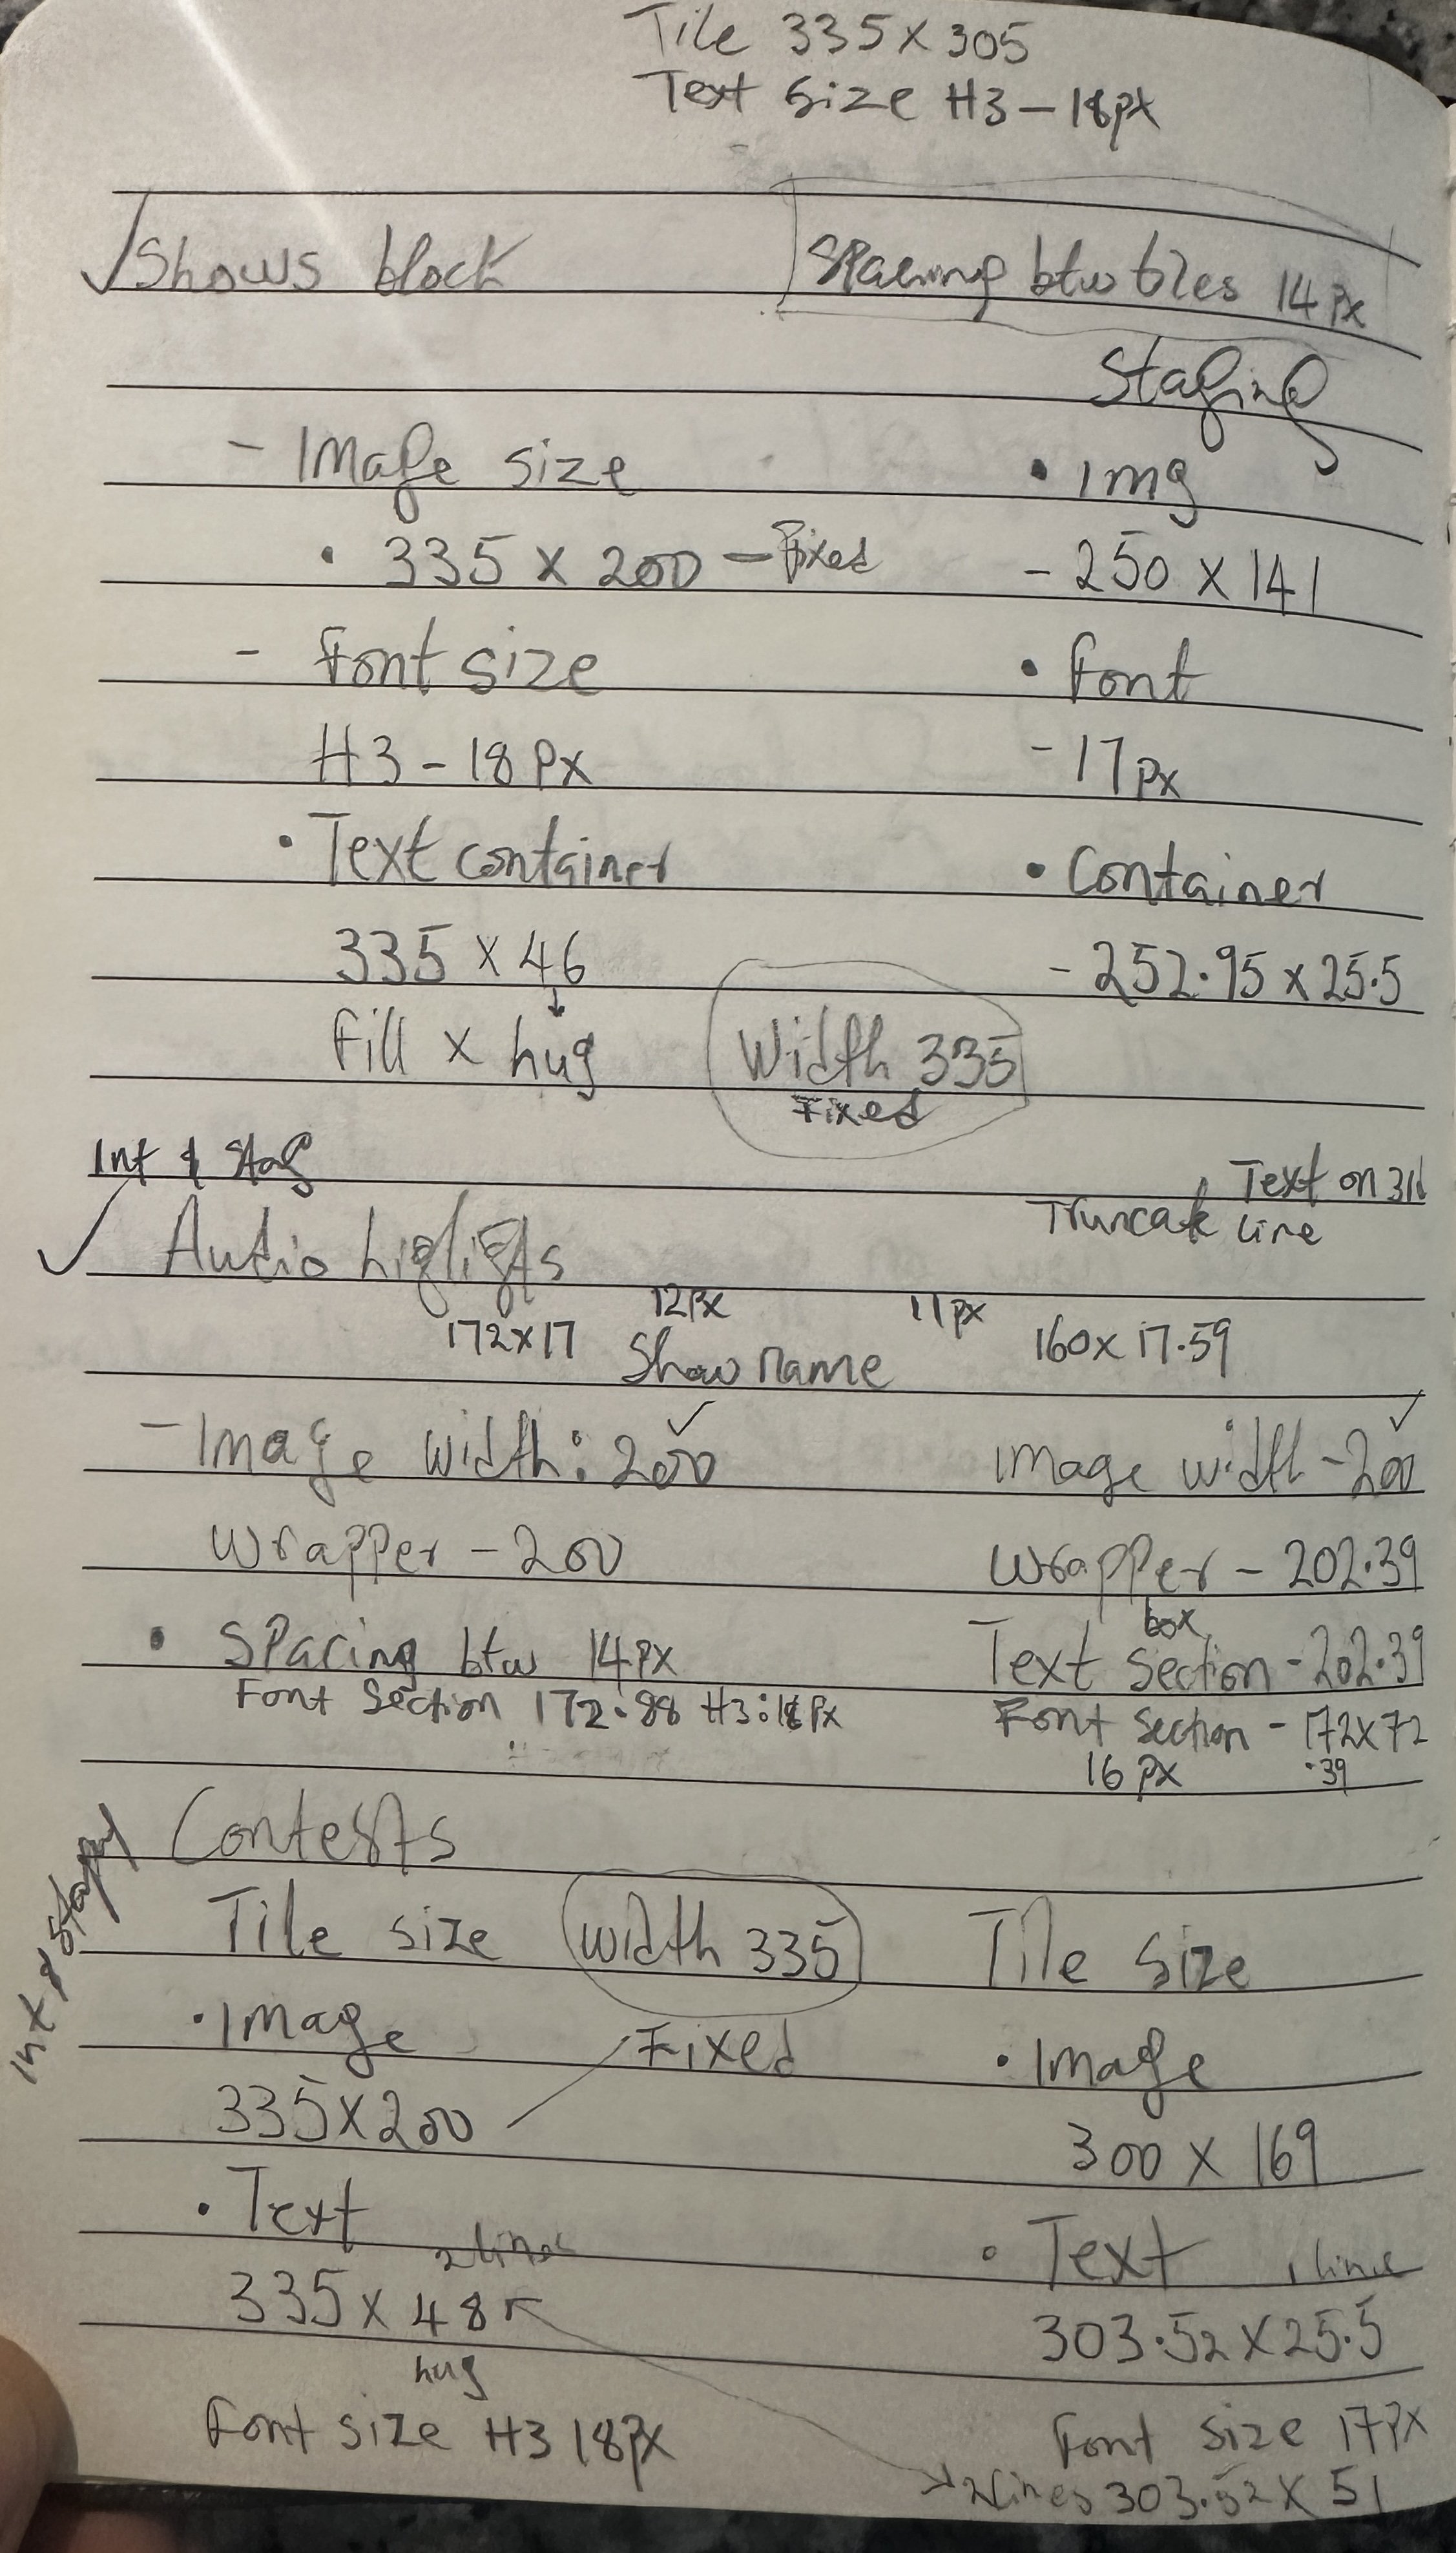 Tile 335 x 305
Text size H3 - 18px
Shows block
Spacing btw tiles 14px
Staging
- Image size
• Img
• 335 x 200 - Fixed
- 250 x 141
- Font size
• Font
H3 - 18px
- 17px
• Text container
• Container
335 x 46
- 252.95 x 25.5
Fill x hug
Width 335
Fixed
Int & Stag
Text on 3rd
Truncate line
Audio
12px
11px
172x17
Show name
160x17.59
- Image width: 200
Image width - 200
Wrapper - 200
Wrapper - 202.39
box
• Spacing btw 14px
Text Section - 202.39
Font Section 172.88 H3: px
Font Section - 172x72
16px
.39
Contests
Int &
Tile size
Width 335
Tile Size
• Image
Fixed
• Image
335x200
300 x 169
• Text
2 lines
• Text
1 line
335x 48
303.52 x 25.5
hug
Font size H3 18px
Font size 17px
2 lines 303.52 x 51